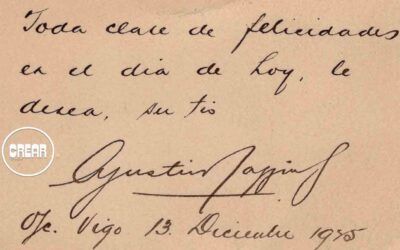 Toda clase de felicidades
en el dia de hoy, le
desea, su tio
CREAR
Agustin
Vigo 13 Diciembre 1945